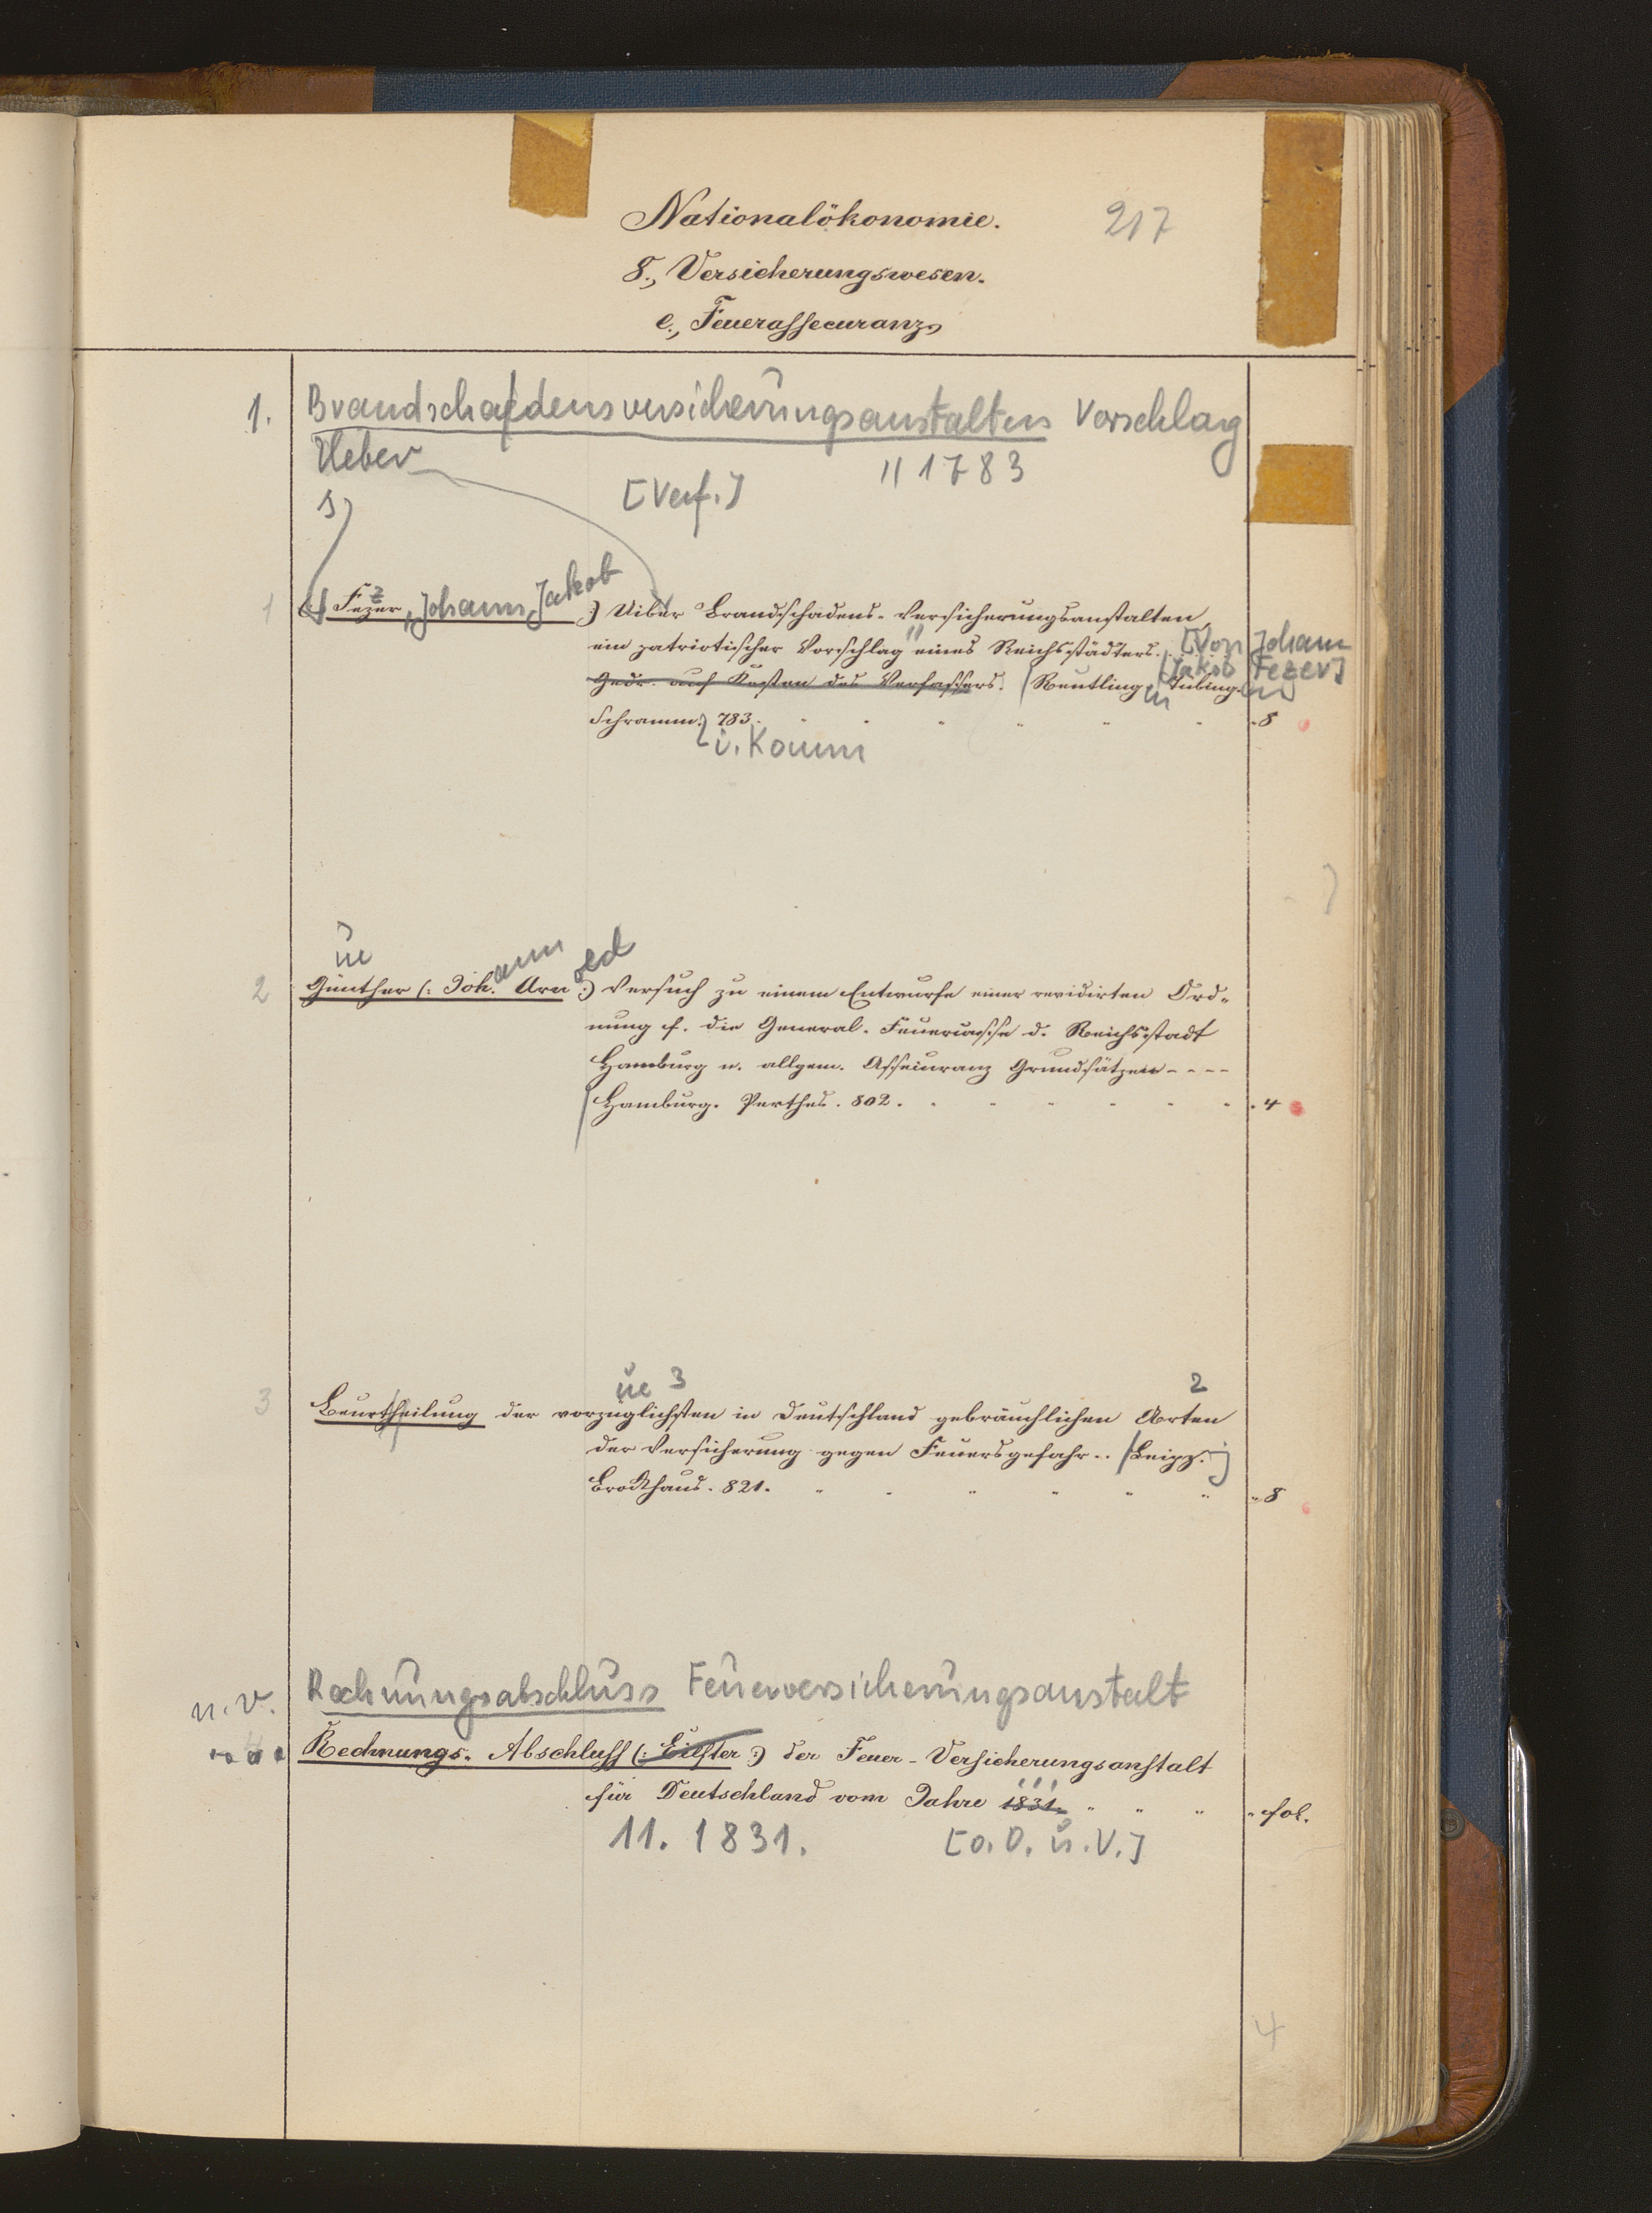 Nationalökonomie. 217
8., Versicherungswesen.
e., Feuerassecuranz
1. Brandschadensversicherungsanstalten Vorschlag
Ueber " 1783
1) [Verf.]
1 Fezer, Johann Jakob :) Uiber Brandschadens-Versicherungsanstalten,
ein patriotischer Vorschlag eines Reichsstädters. [Von Johann
Jakob Fezer]
Gedr. auf Kosten des Verfassers. Reutling. u. Tübing.
Schramm. 783. 8
u. Komm
2 Günther (: Joh.ann Arnold :) Versuch zu einem Entwurfe einer revidirten Ord-
nung f. die General-Feuercasse d. Reichsstadt
Hamburg n. allgem. Assecuranz Grundsätzen - - - -
Hamburg. Perthes. 802. 4
ue 3 2
3 Beurtheilung der vorzüglichsten in Deutschland gebräuchlichen Arten
der Versicherung gegen Feuersgefahr.. Leipz.
Brockhaus. 821. 8
n. v. Rechnungsabschluss Feuerversicherungsanstalt
Rechnungs-Abschluss (: Eilfter :) der Feuer-Versicherungsanstalt
für Deutschland vom Jahre 1831. " " " fol.
11. 1831. [o. O. u. V.]
4